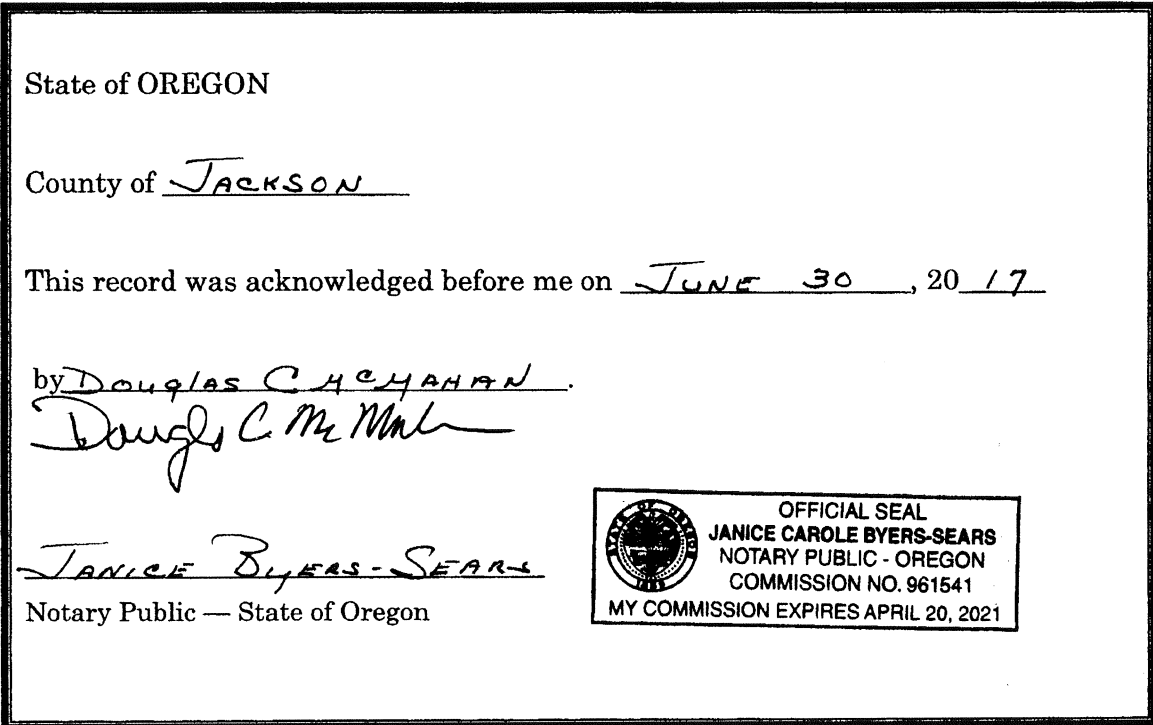 State of OREGON
County of JACKSON
This record was acknowledged before me on JUNE 30, 2017
by DOUGLAS C MCMAHAN.
Douglas C. Mc Mahan
JANICE BYERS-SEARS
Notary Public — State of Oregon
STATE OF OREGON
1859
OFFICIAL SEAL
JANICE CAROLE BYERS-SEARS
NOTARY PUBLIC - OREGON
COMMISSION NO. 961541
MY COMMISSION EXPIRES APRIL 20, 2021